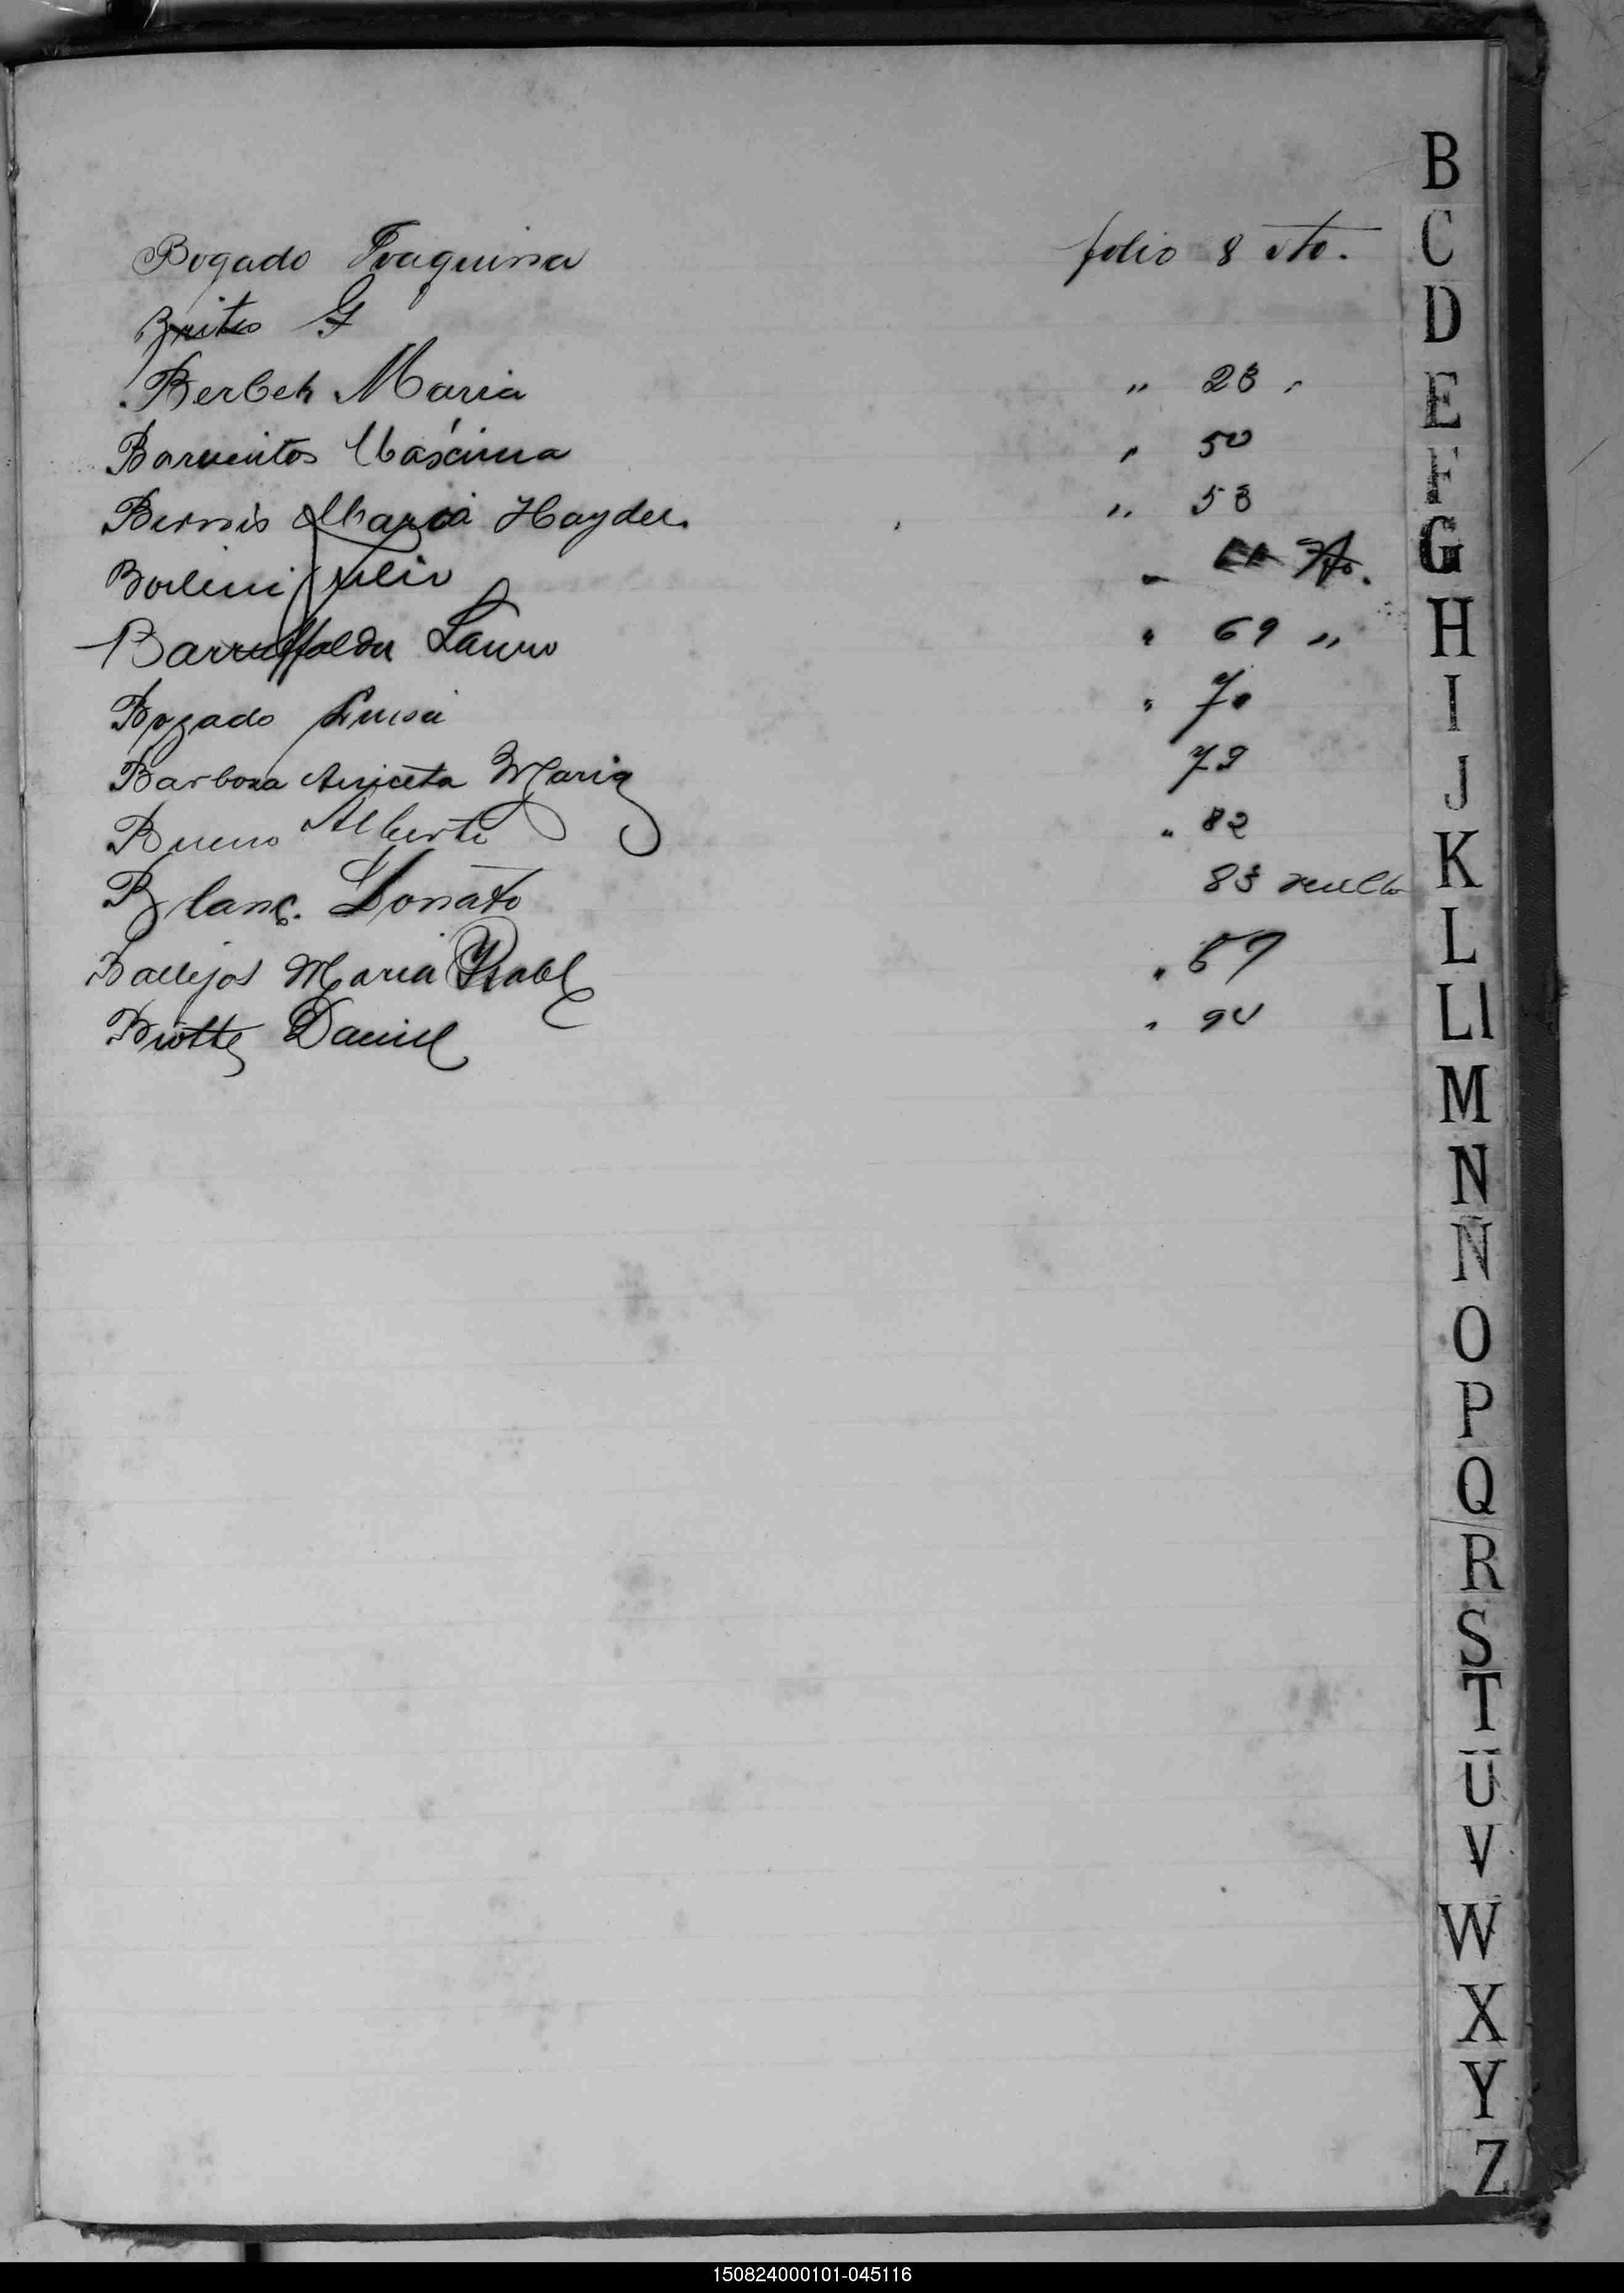 Bogado Joaquina folio 8 vto.
Brites G
Berbeh Maria " 23 "
Barrientos Máxima " 50
Bernis Maria Haydee " 53
Borlini Julio "
Barruffaldu Lauro " 69 "
Bogado Luisa " 70
Barboza Aniceta Maria 79
Bueno Alberto " 82
Blanc. Donato 83 vuelto
Ballejos Maria Ysabel " 87
Biotte Daniel " 90
B
C
D
E
F
G
H
I
J
K
L
Ll
M
N
Ñ
O
P
Q
R
S
T
U
V
W
X
Y
Z
150824000101-045116